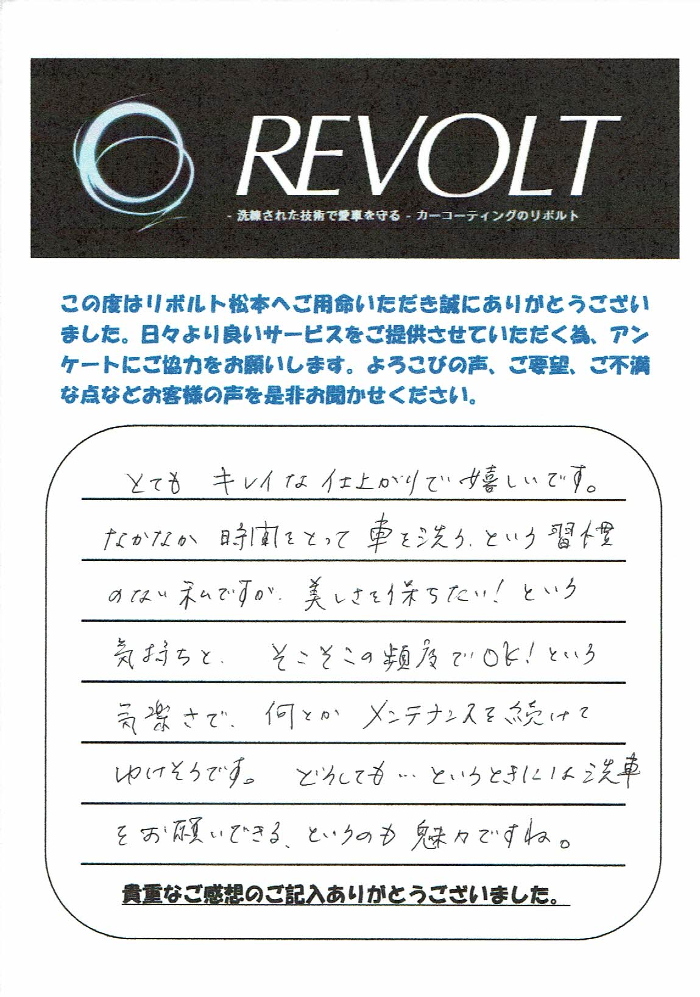 REVOLT
- 洗練された技術で愛車を守る - カーコーティングのリボルト
この度はリボルト松本へご用命いただき誠にありがとうござい
ました。日々より良いサービスをご提供させていただく為、アン
ケートにご協力をお願いします。よろこびの声、ご要望、ご不満
な点などお客様の声を是非お聞かせください。
とても キレイな仕上がりで嬉しいです。
なかなか 時間をとって 車を洗う、という 習慣
のない私ですが、美しさを保ちたい！という
気持ちと、そこそこの頻度でOK！という
気楽さで、何とか メンテナンスを続けて
ゆけそうです。 どうしても…というときには洗車
をお願いできる、というのも 魅々ですね。
貴重なご感想のご記入ありがとうございました。